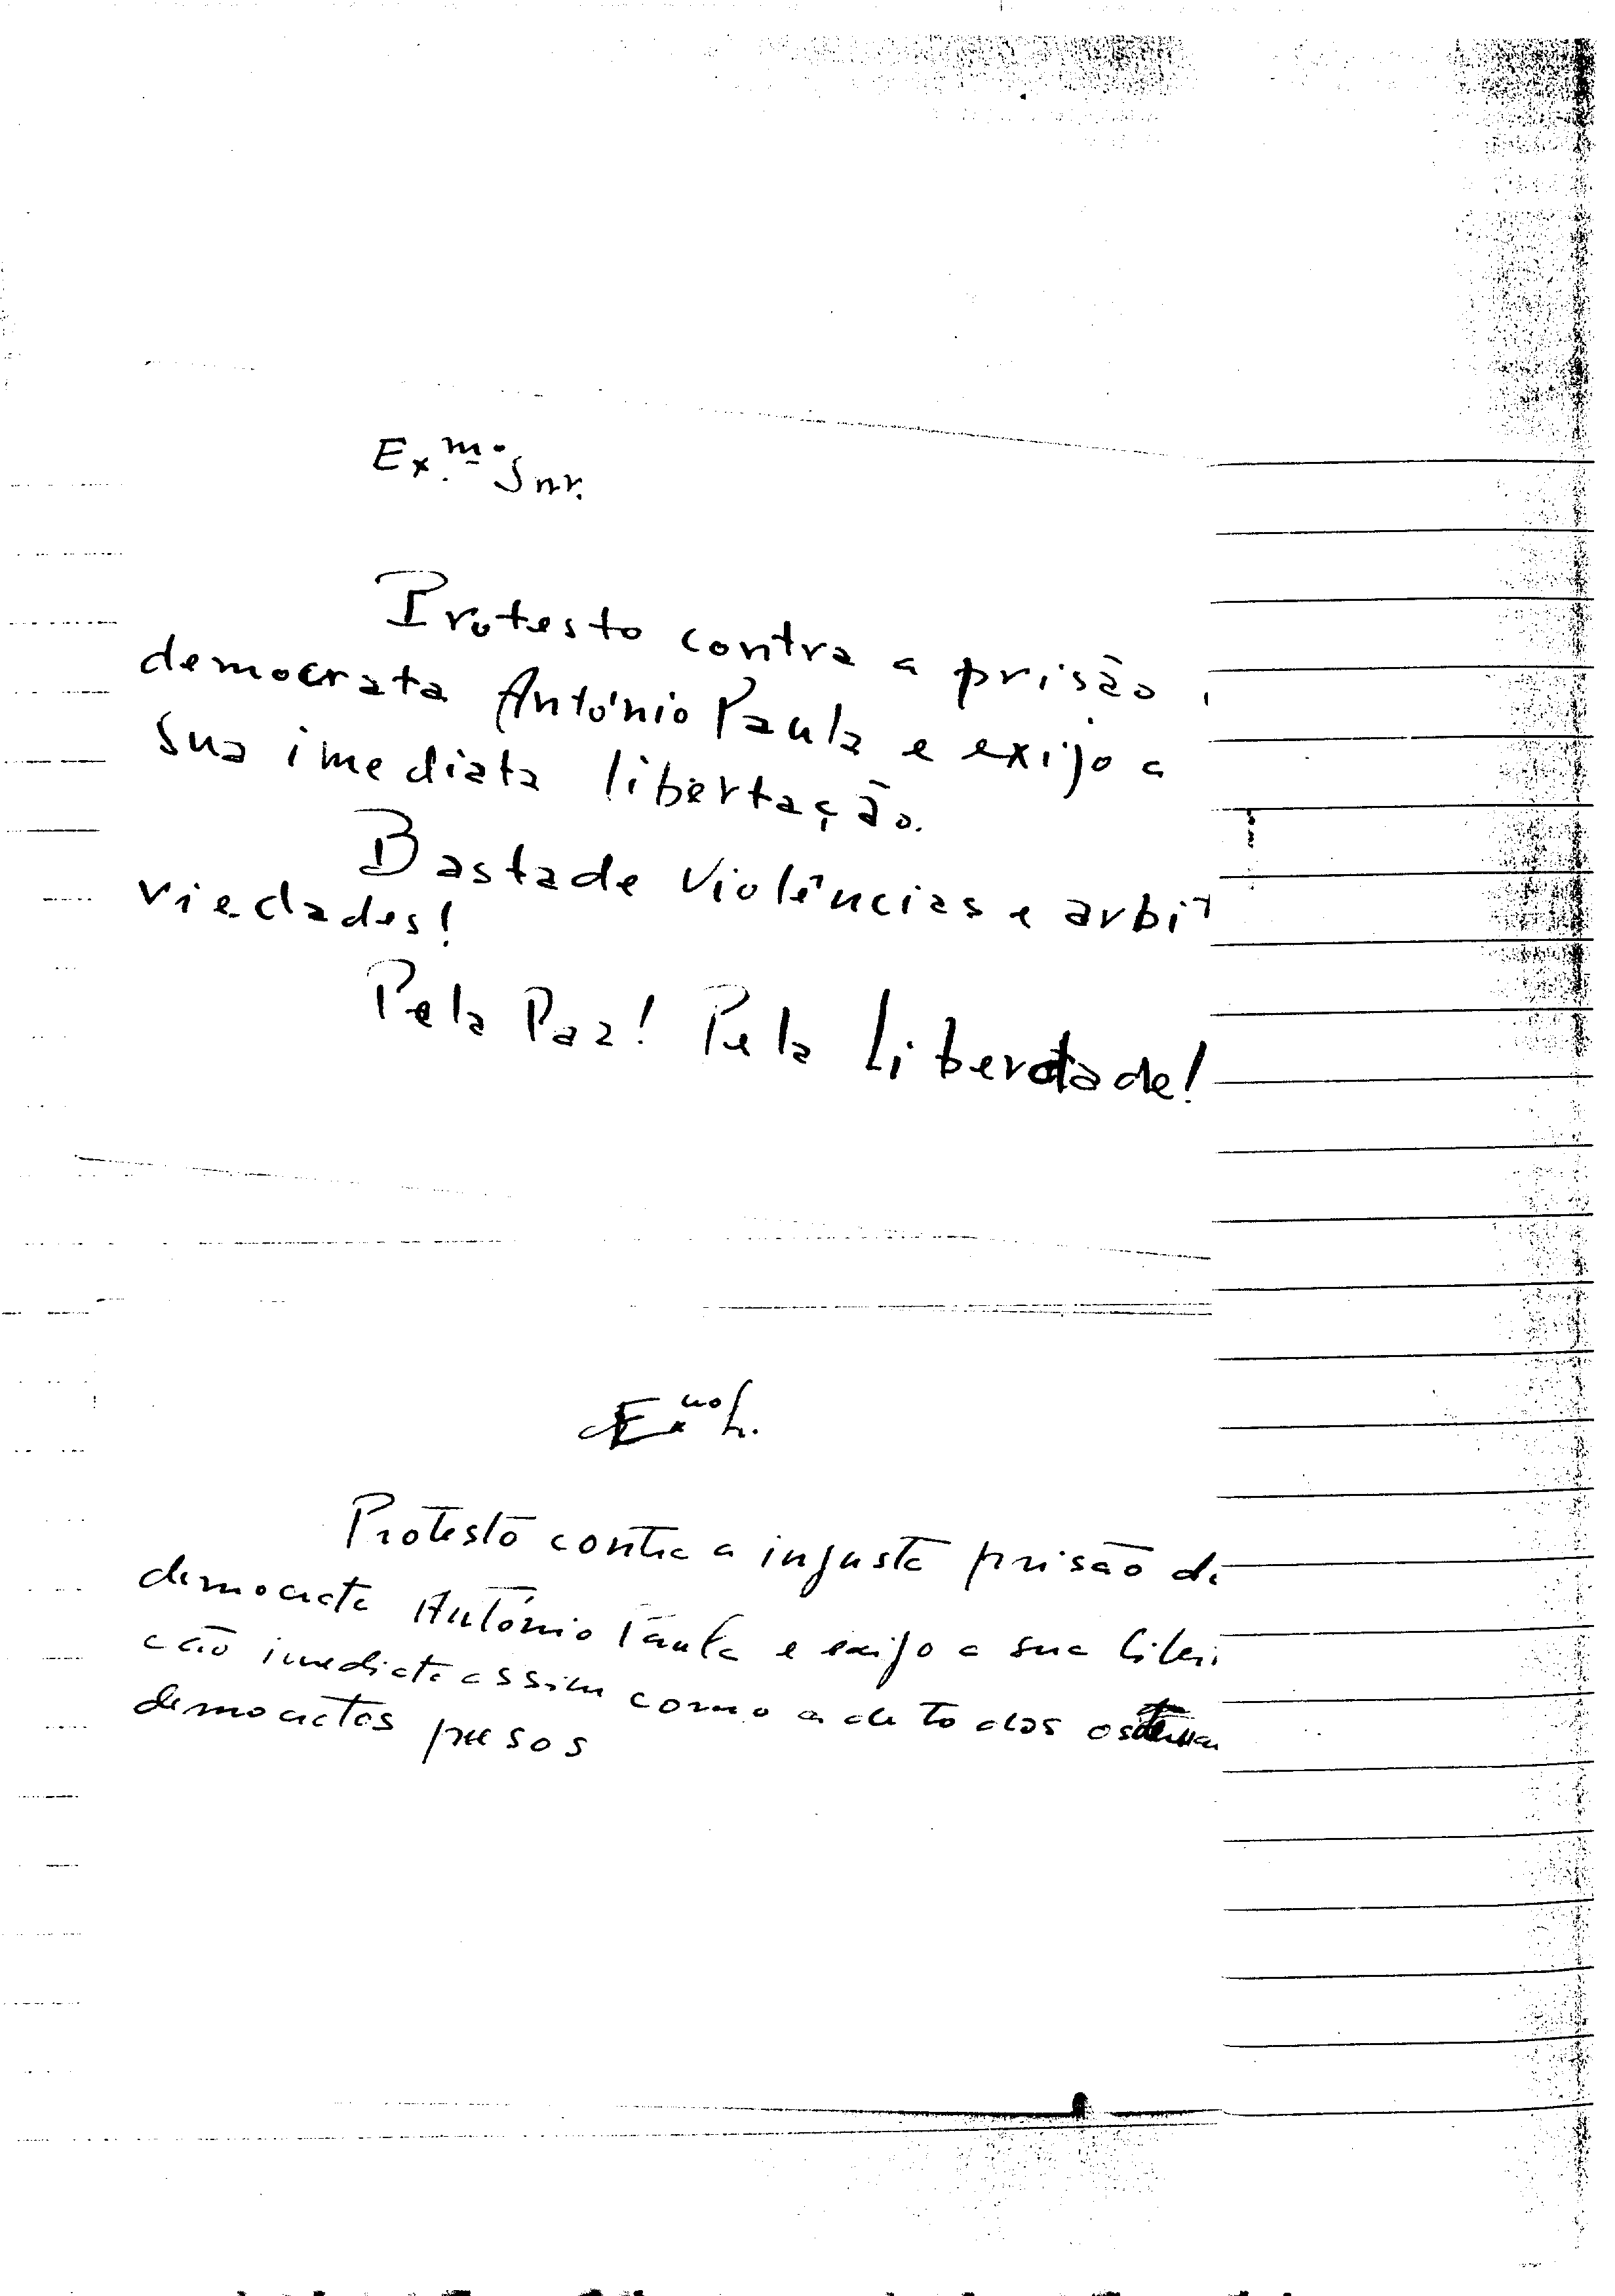 Ex.mo Snr.
Protesto contra a prisão
democrata António Paula e exijo a
sua imediata libertação.
Basta de violências e arbit
riedades!
Pela Paz! Pela Liberdade!
Exmo Sr.
Protesto contra a injusta prisão do
democrata António Paula e exijo a sua liber
ção imediata assim como a de todos os
democratas presos